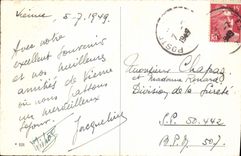 Vienne 5-7-1949.
Avec notre
excellent souvenir
et nos meilleurs
amitiés de Vienne
où nous faisons
un merveilleux
séjour.
Jacqueline
Monsieur Chapaz
et Madame
Division de la Sureté
S.P. 50.442
B.P.M. 507.
POSTE